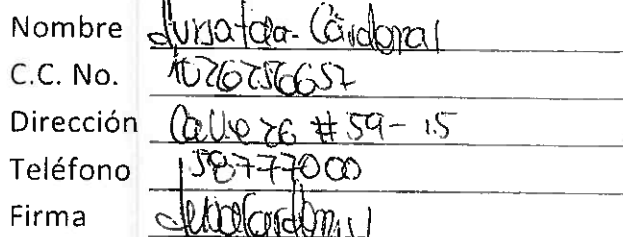 Nombre
C.C. No. 1026256657
Dirección Calle 26 # 59-15
Teléfono 58777000
Firma